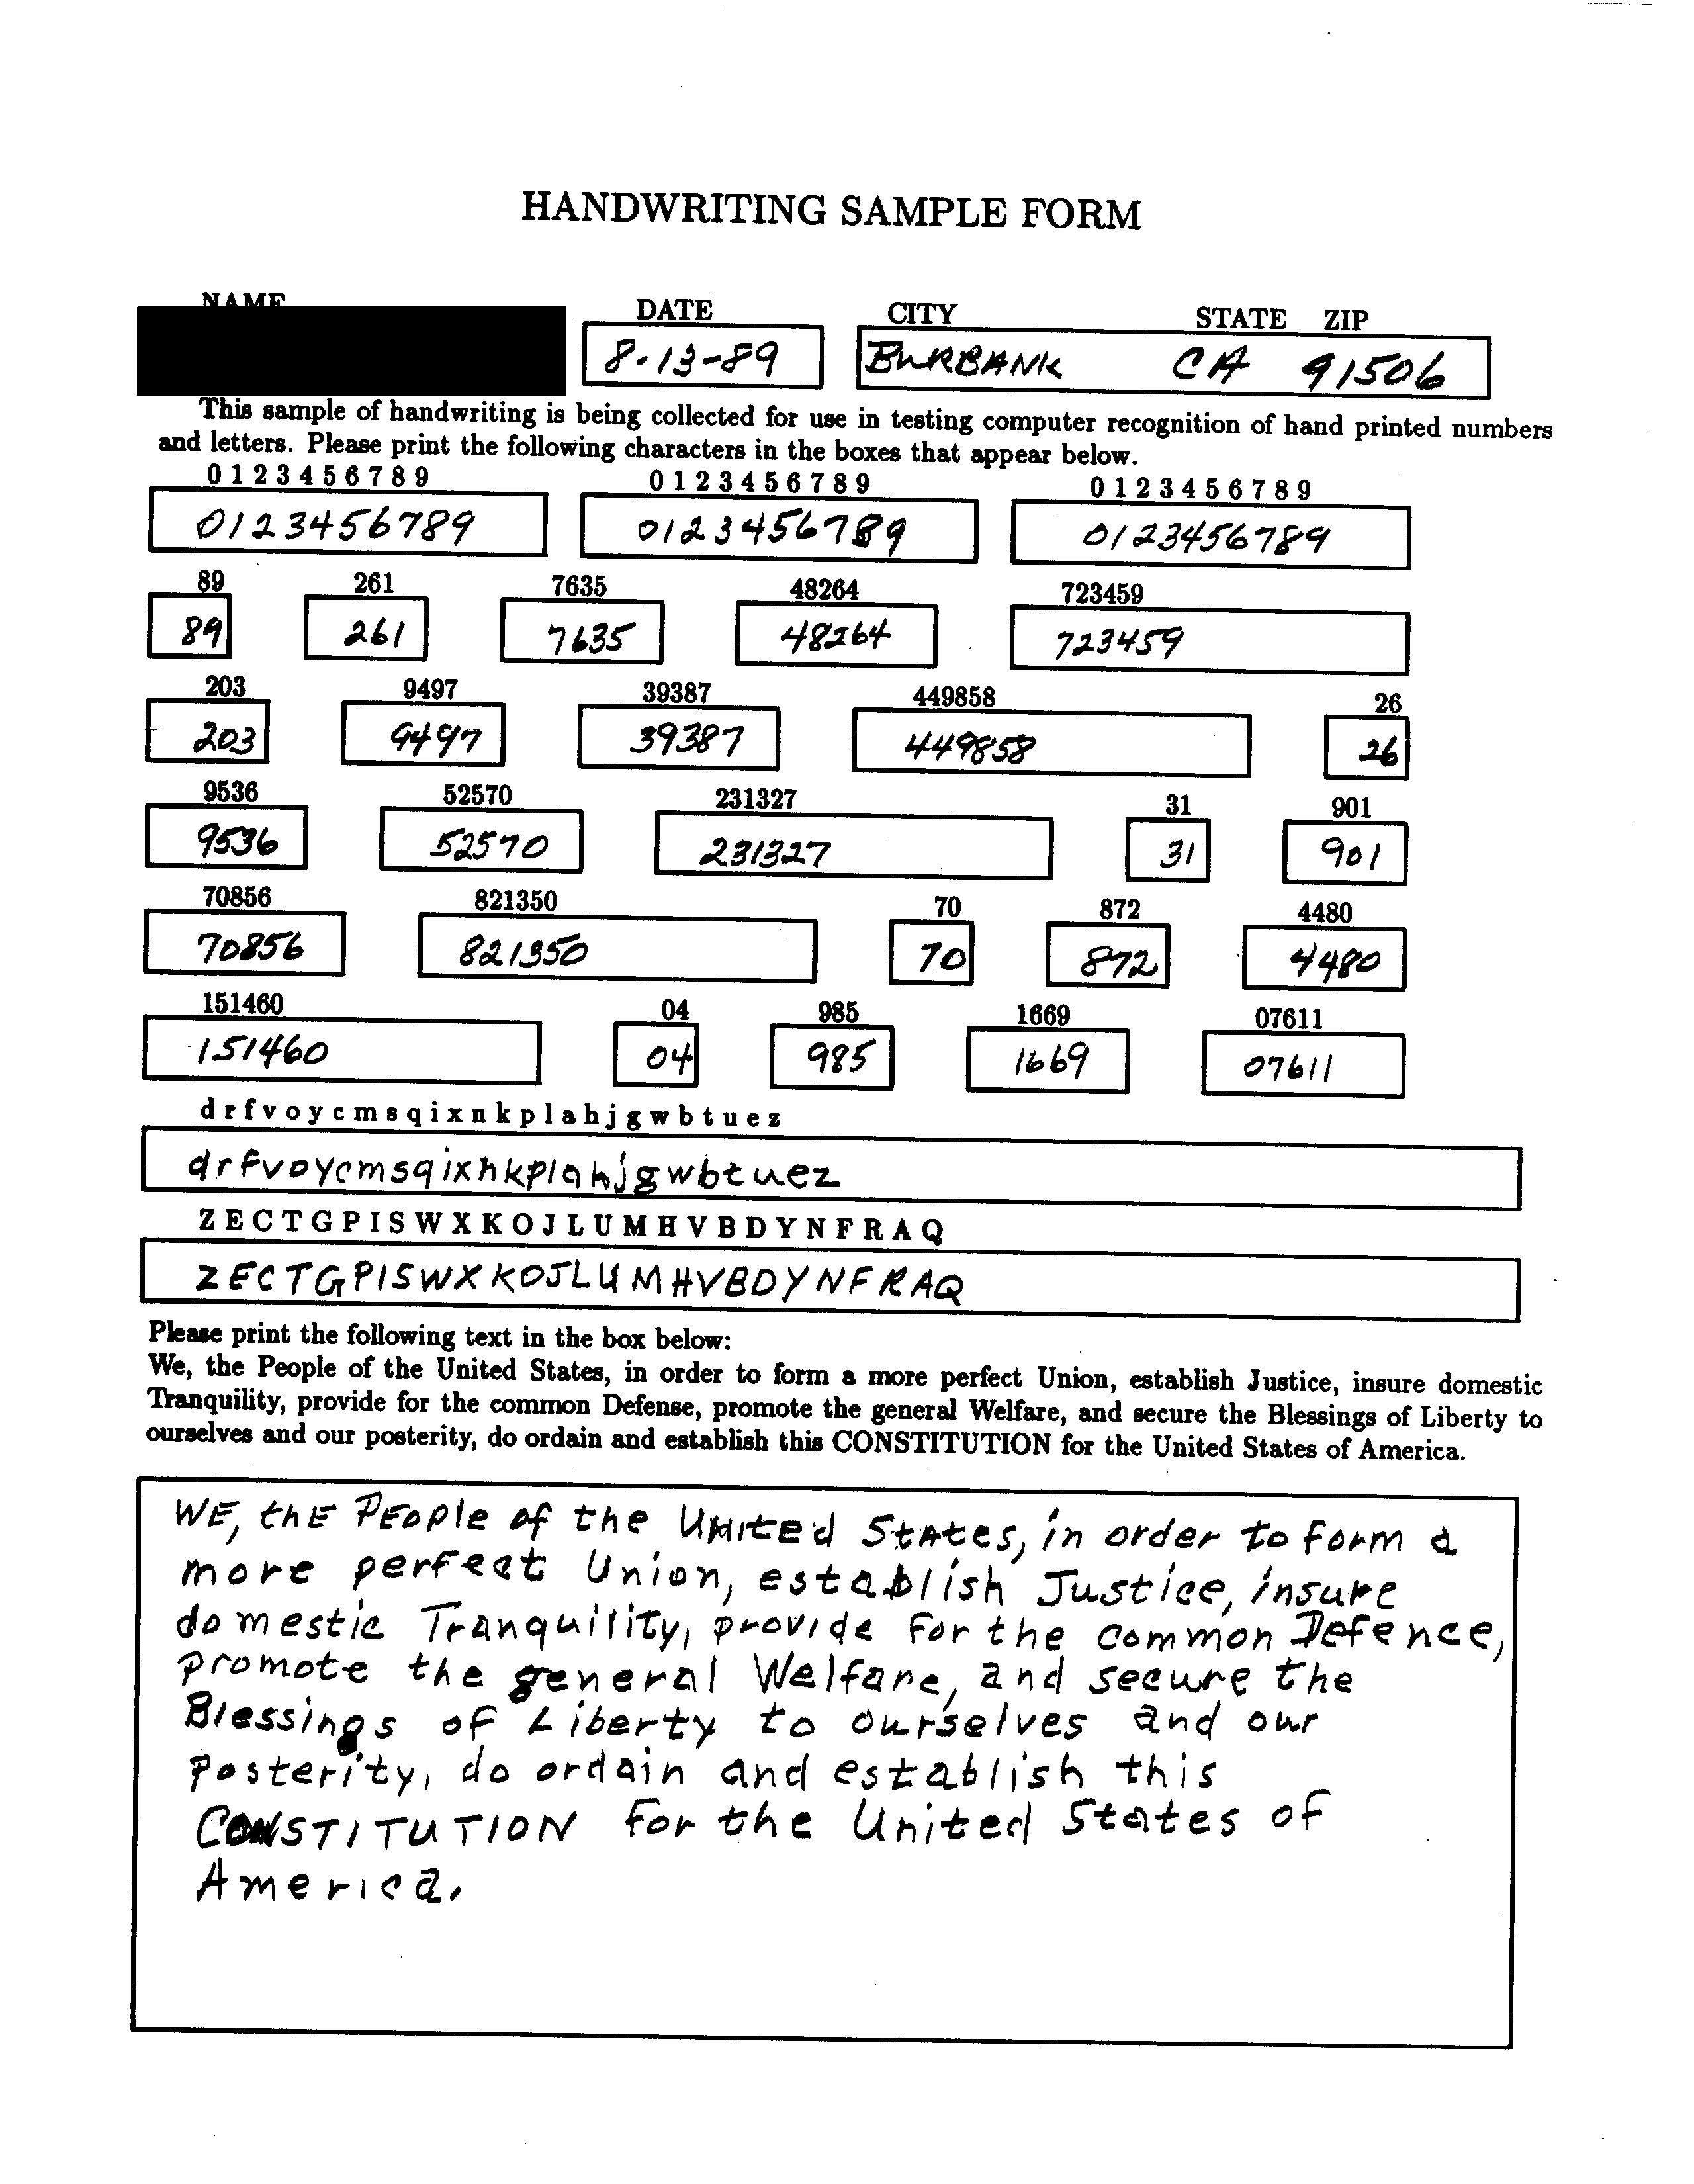 HANDWRITING SAMPLE FORM
NAME DATE CITY STATE ZIP
8-13-89 BURBANK CA 91506
This sample of handwriting is being collected for use in testing computer recognition of hand printed numbers
and letters. Please print the following characters in the boxes that appear below.
0 1 2 3 4 5 6 7 8 9 0 1 2 3 4 5 6 7 8 9 0 1 2 3 4 5 6 7 8 9
0123456789 0123456789 0123456789
89 261 7635 48264 723459
89 261 7635 48264 723459
203 9497 39387 449858 26
203 9497 39387 449858 26
9536 52570 231327 31 901
9536 52570 231327 31 901
70856 821350 70 872 4480
70856 821350 70 872 4480
151460 04 985 1669 07611
151460 04 985 1669 07611
d r f v o y c m s q i x n k p l a h j g w b t u e z
drfvoycmsqixnkplahjgwbtuez
Z E C T G P I S W X K O J L U M H V B D Y N F R A Q
ZECTGPISWXKOJLUMHVBDYNFRAQ
Please print the following text in the box below:
We, the People of the United States, in order to form a more perfect Union, establish Justice, insure domestic
Tranquility, provide for the common Defense, promote the general Welfare, and secure the Blessings of Liberty to
ourselves and our posterity, do ordain and establish this CONSTITUTION for the United States of America.
WE, thE PEople of the UNited StAtes, in order to form a
more perfect Union, establish Justice, insure
domestic Tranquility, provide for the common Defence,
promote the general Welfare, and secure the
Blessings of Liberty to ourselves and our
posterity, do ordain and establish this
CONSTITUTION for the United States of
America.